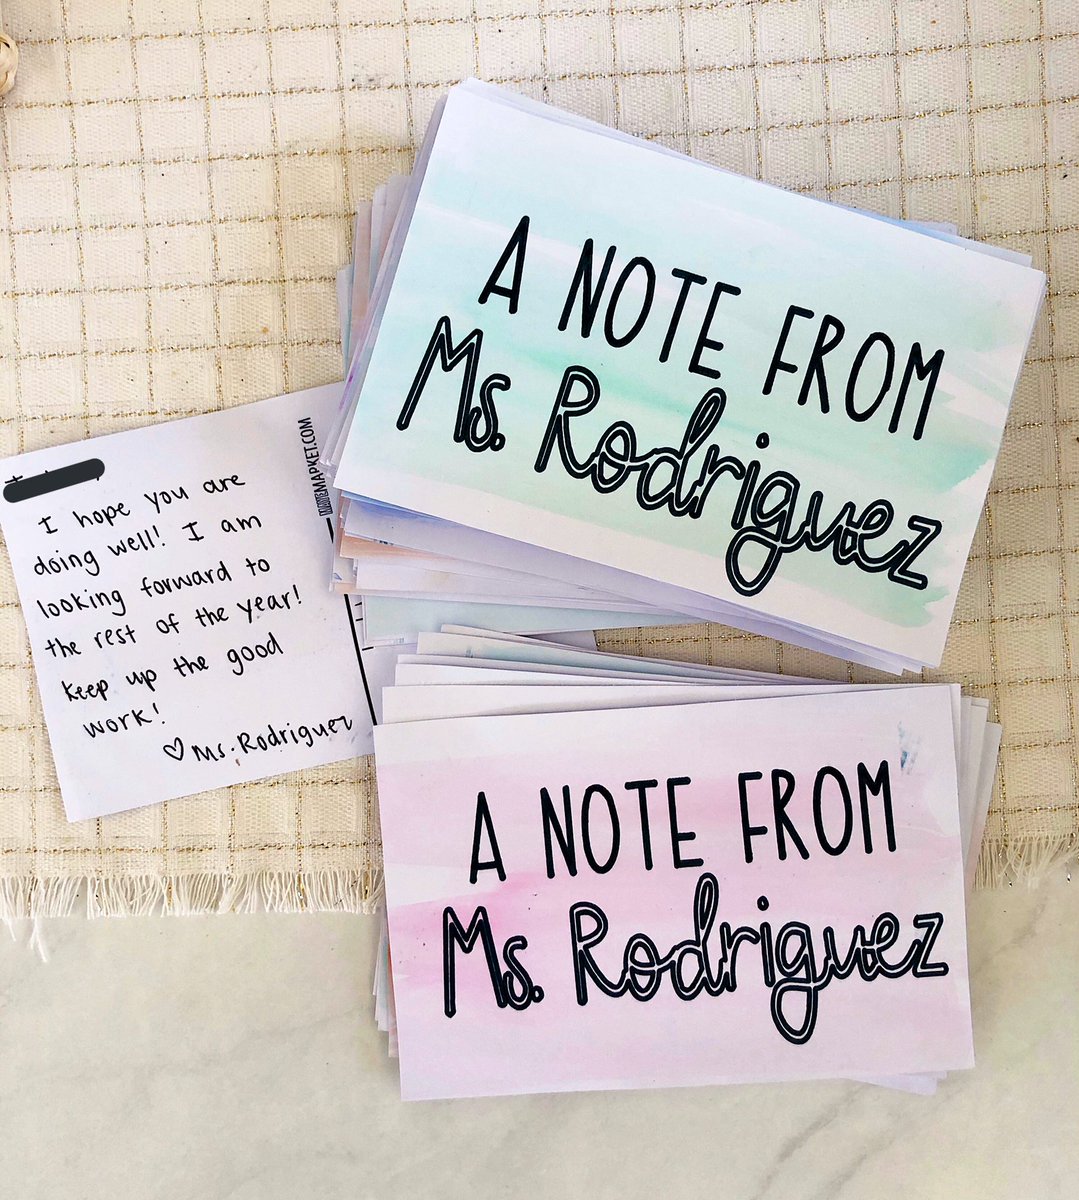 A NOTE FROM
Ms. Rodriguez
I hope you are
doing well! I am
looking forward to
the rest of the year!
keep up the good
work!
♡ Ms. Rodriguez
MAPKET.COM
A NOTE FROM
Ms. Rodriguez